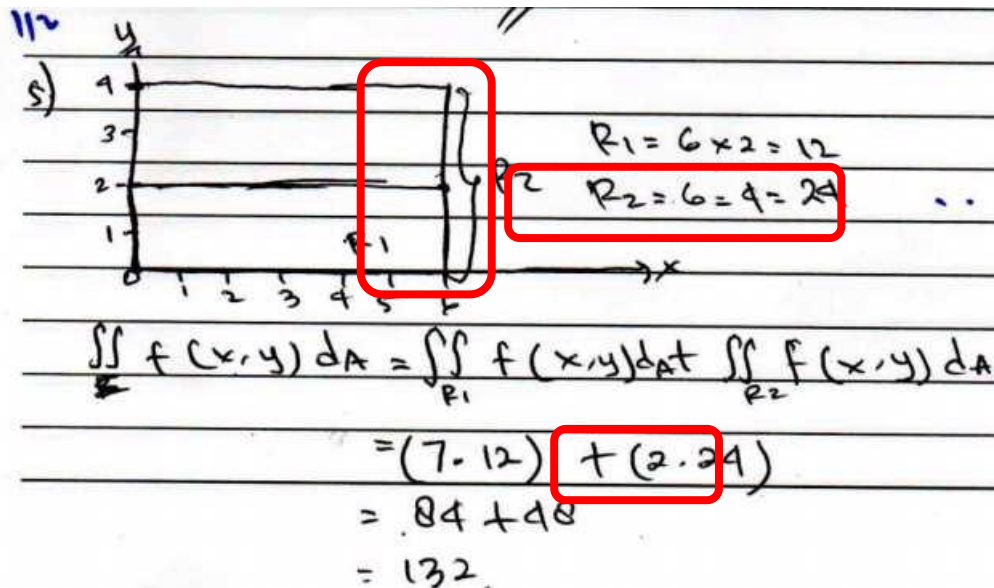 112
y
5) 4
3
2 R2
1
R1
0 1 2 3 4 5 6 x
R1 = 6 × 2 = 12
R2 = 6 = 4 = 24
∬ f(x,y) dA = ∬R1 f(x,y)dA+ ∬R2 f(x,y) dA
= (7.12) + (2.24)
= 84 + 48
= 132